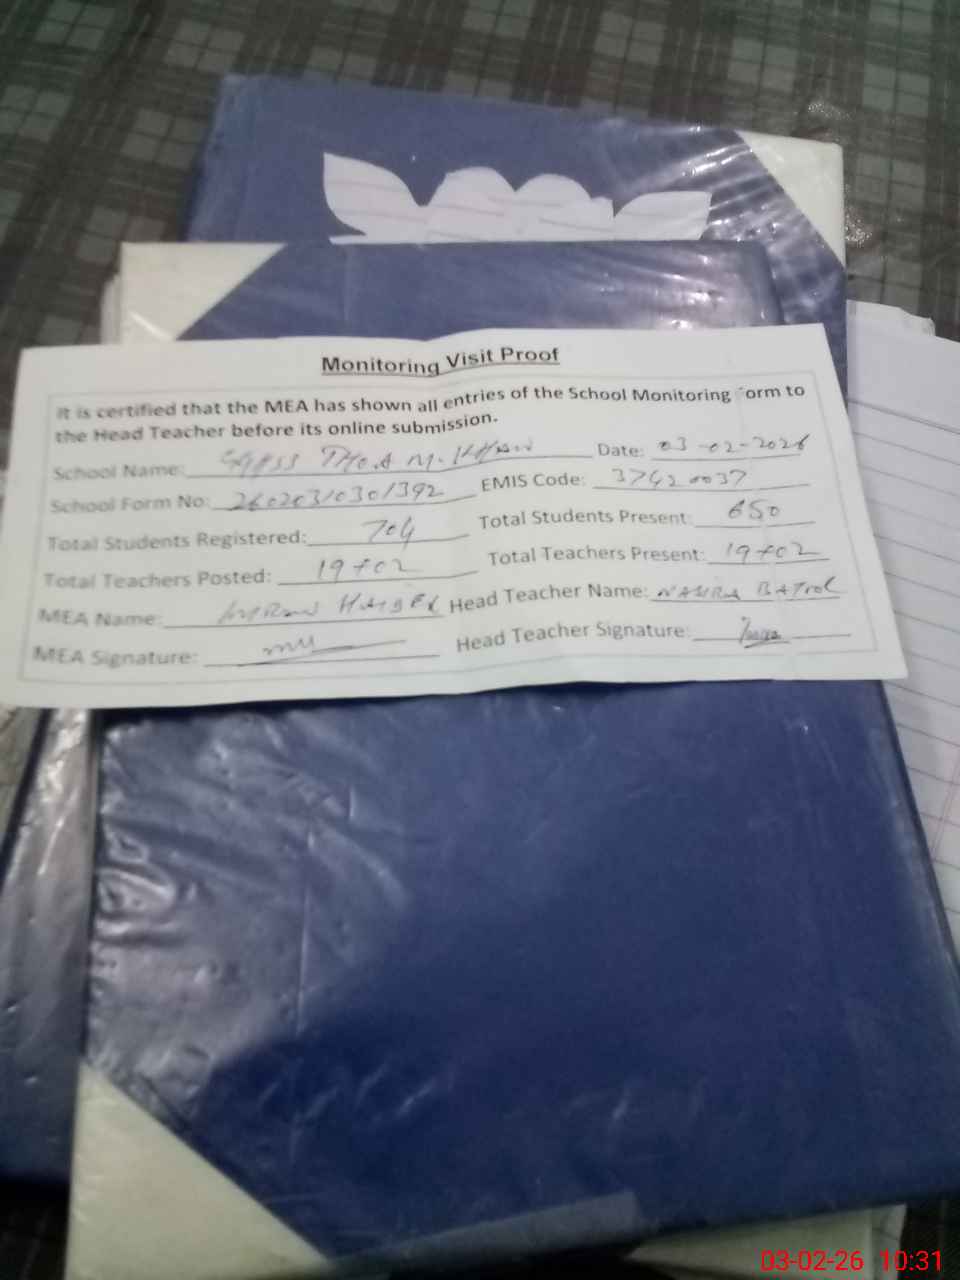 Monitoring Visit Proof
It is certified that the MEA has shown all entries of the School Monitoring Form to
the Head Teacher before its online submission.
School Name: GGHSS THOA M. KHAN Date: 03-02-2026
School Form No: 260203/0301392 EMIS Code: 37420037
Total Students Registered: 704 Total Students Present: 650
Total Teachers Posted: 19+02 Total Teachers Present: 19+02
MEA Name: HAIDER Head Teacher Name: BATOOL
MEA Signature: Head Teacher Signature:
03-02-26 10:31